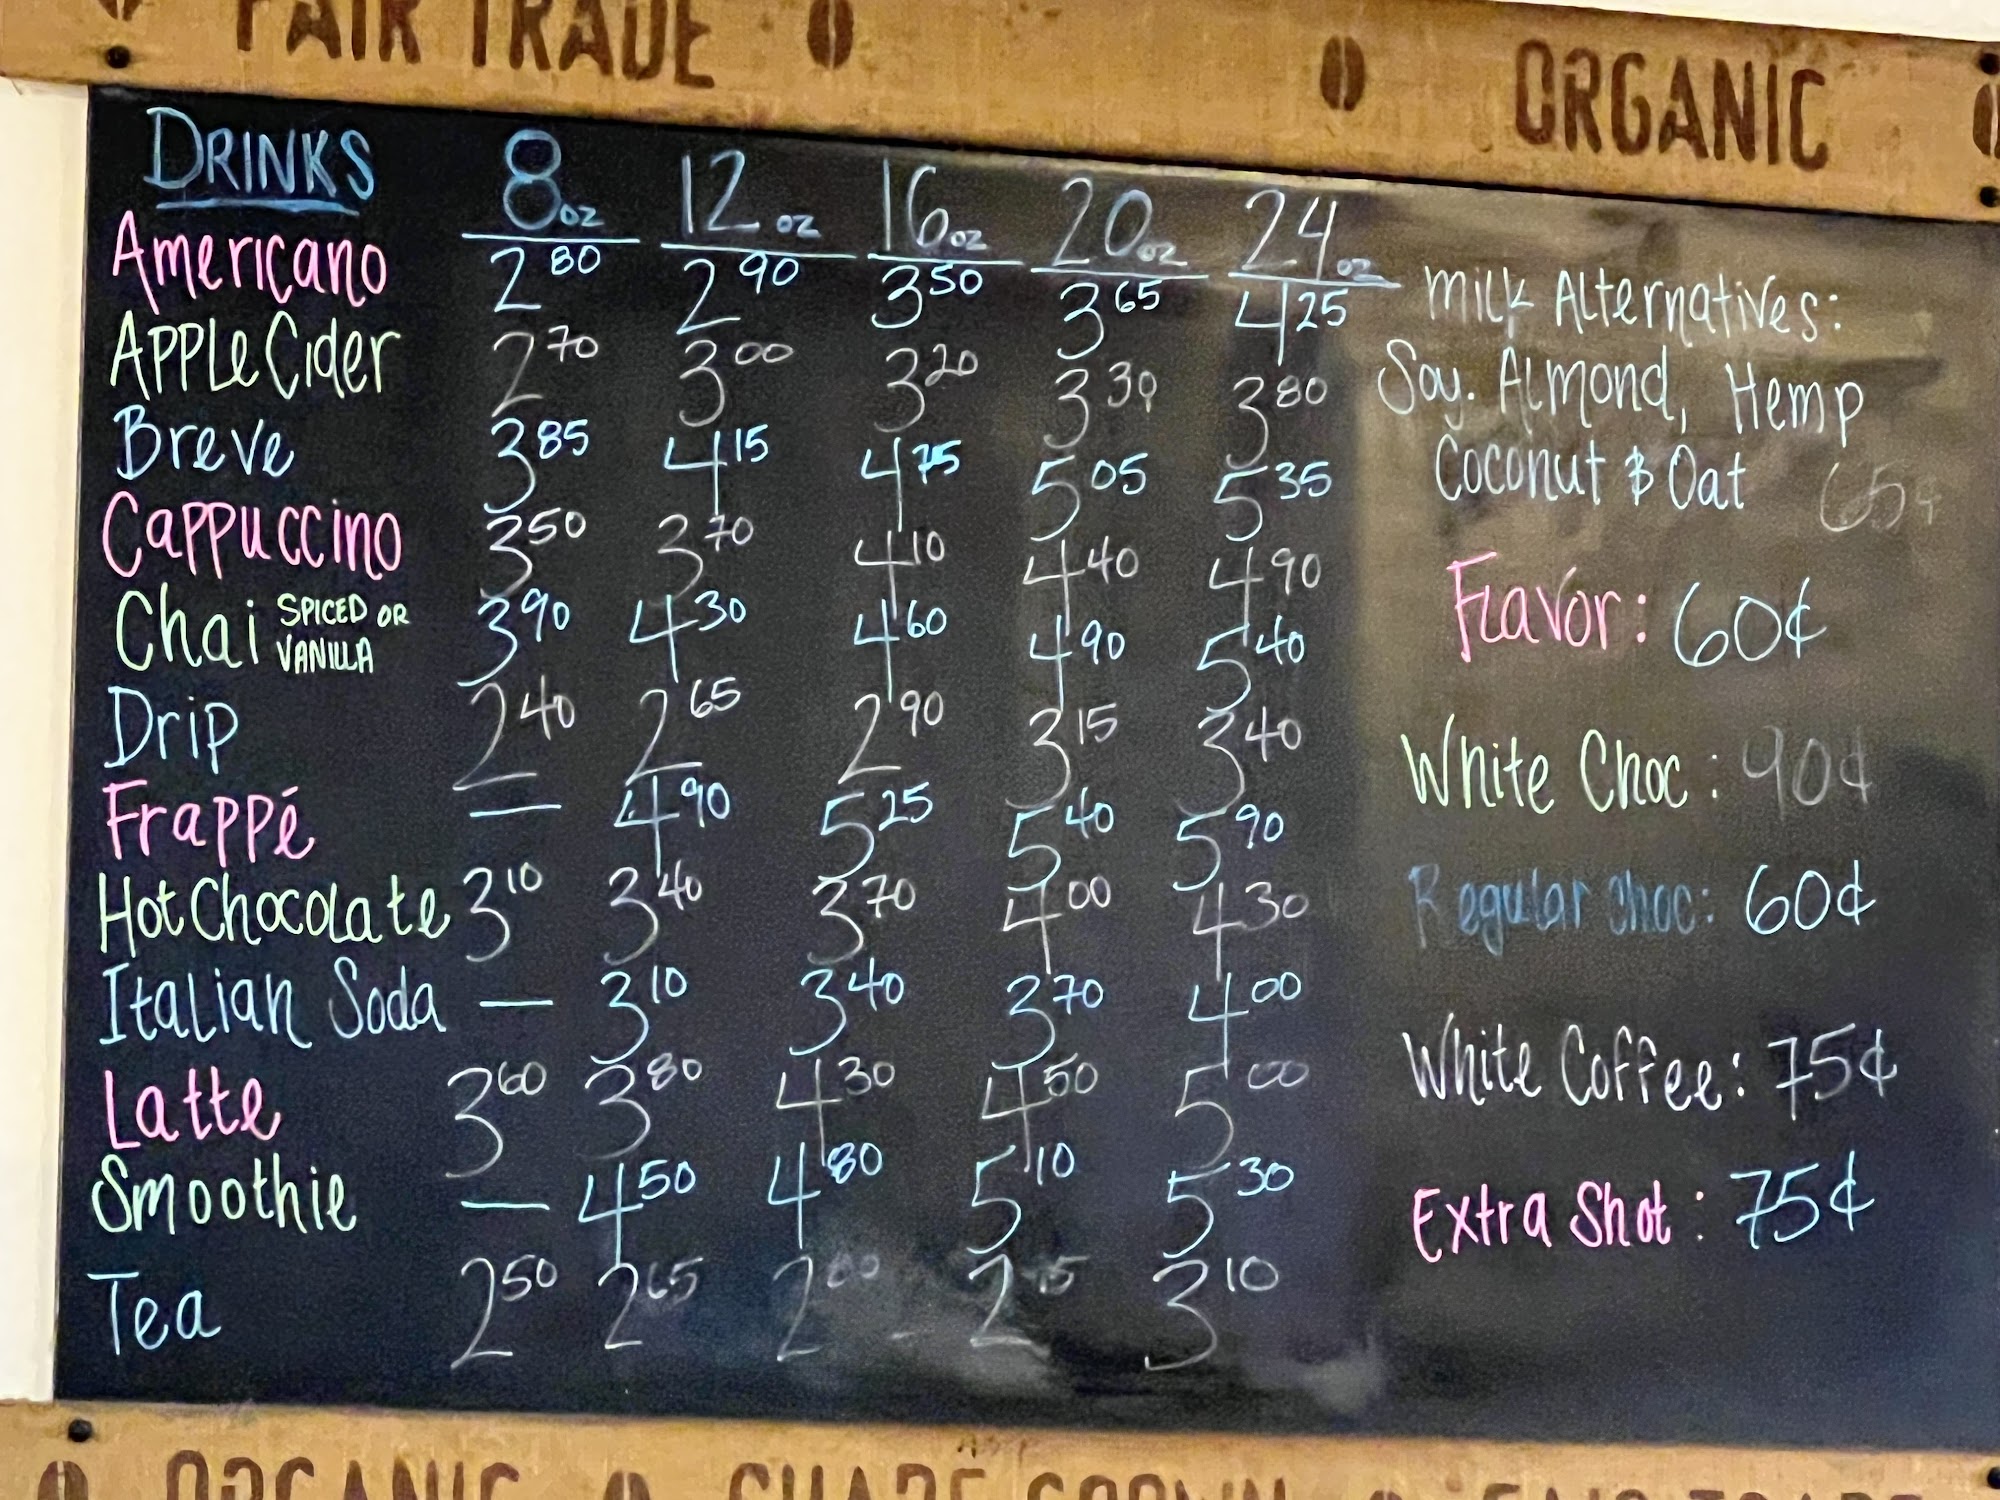 FAIR TRADE
ORGANIC
DRINKS 8oz 12oz 16oz 20oz 24oz
Americano 2 80 2 90 3 50 3 65 4 25
APPLE Cider 2 70 3 00 3 20 3 30 3 80
Breve 3 85 4 15 4 75 5 05 5 35
Cappuccino 3 50 3 70 4 10 4 40 4 90
Chai SPICED OR VANILLA 3 90 4 30 4 60 4 90 5 40
Drip 2 40 2 65 2 90 3 15 3 40
Frappé — 4 90 5 25 5 40 5 90
Hot Chocolate 3 10 3 40 3 70 4 00 4 30
Italian Soda — 3 10 3 40 3 70 4 00
Latte 3 60 3 80 4 30 4 50 5 00
Smoothie — 4 50 4 80 5 10 5 30
Tea 2 50 2 65 2 2 3 10
Milk Alternatives:
Soy. Almond, Hemp
Coconut & Oat 65¢
Flavor: 60¢
White Choc: 90¢
Regular Choc: 60¢
White Coffee: 75¢
Extra Shot: 75¢
ORGANIC SHADE GROWN FAIR TRADE